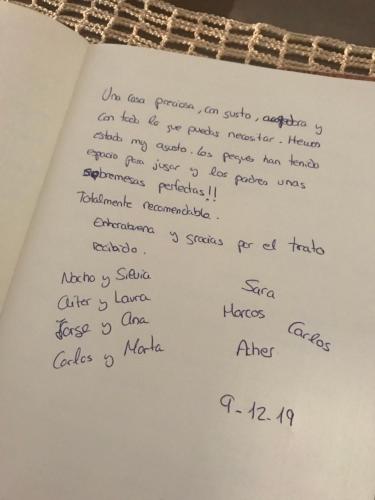 Una casa preciosa, con gusto, acogedora y
con todo lo que puedas necesitar. Hemos
estado muy agusto. Los peques han tenido
espacio para jugar y los padres unas
sobremesas perfectas!!
Totalmente recomendable.
Enhorabuena y gracias por el trato
recibido.
Nacho y Silvia
Aiter y Laura
Jorge y Ana
Carlos y Marta
Sara
Marcos
Carlos
Asher
9-12-19